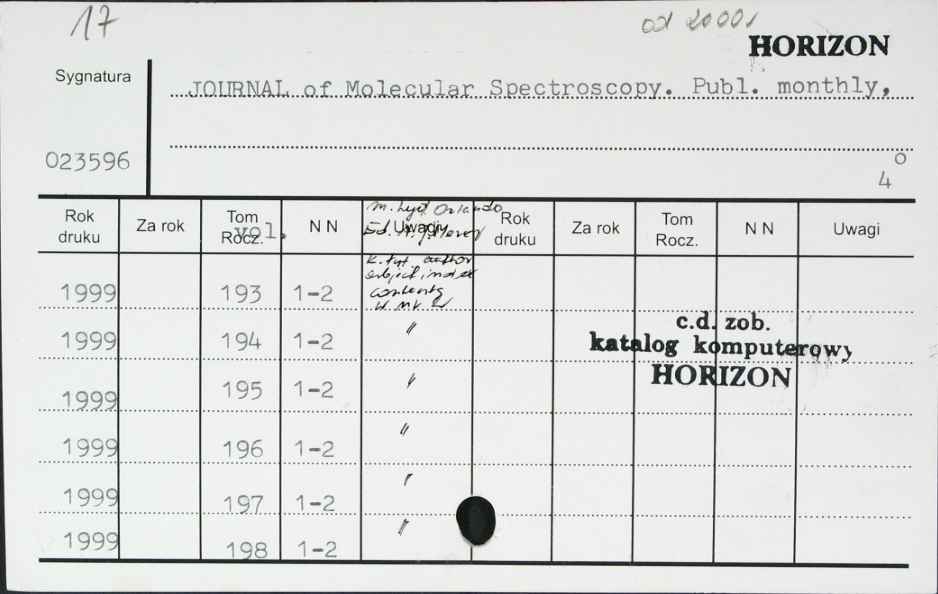 17
od 2000r
HORIZON
Sygnatura
JOURNAL of Molecular Spectroscopy. Publ. monthly,
023596
4°
Rok druku Za rok Tom Rocz. vol. N N Uwagi Rok druku Za rok Tom Rocz. N N Uwagi
m. Orlando
Ed.
k. tyt. author
subject index
contents
w nr 2
1999 193 1-2
1999 194 1-2 "
1999 195 1-2 "
1999 196 1-2 "
1999 197 1-2 "
1999 198 1-2 "
c.d. zob.
katalog komputerowy
HORIZON